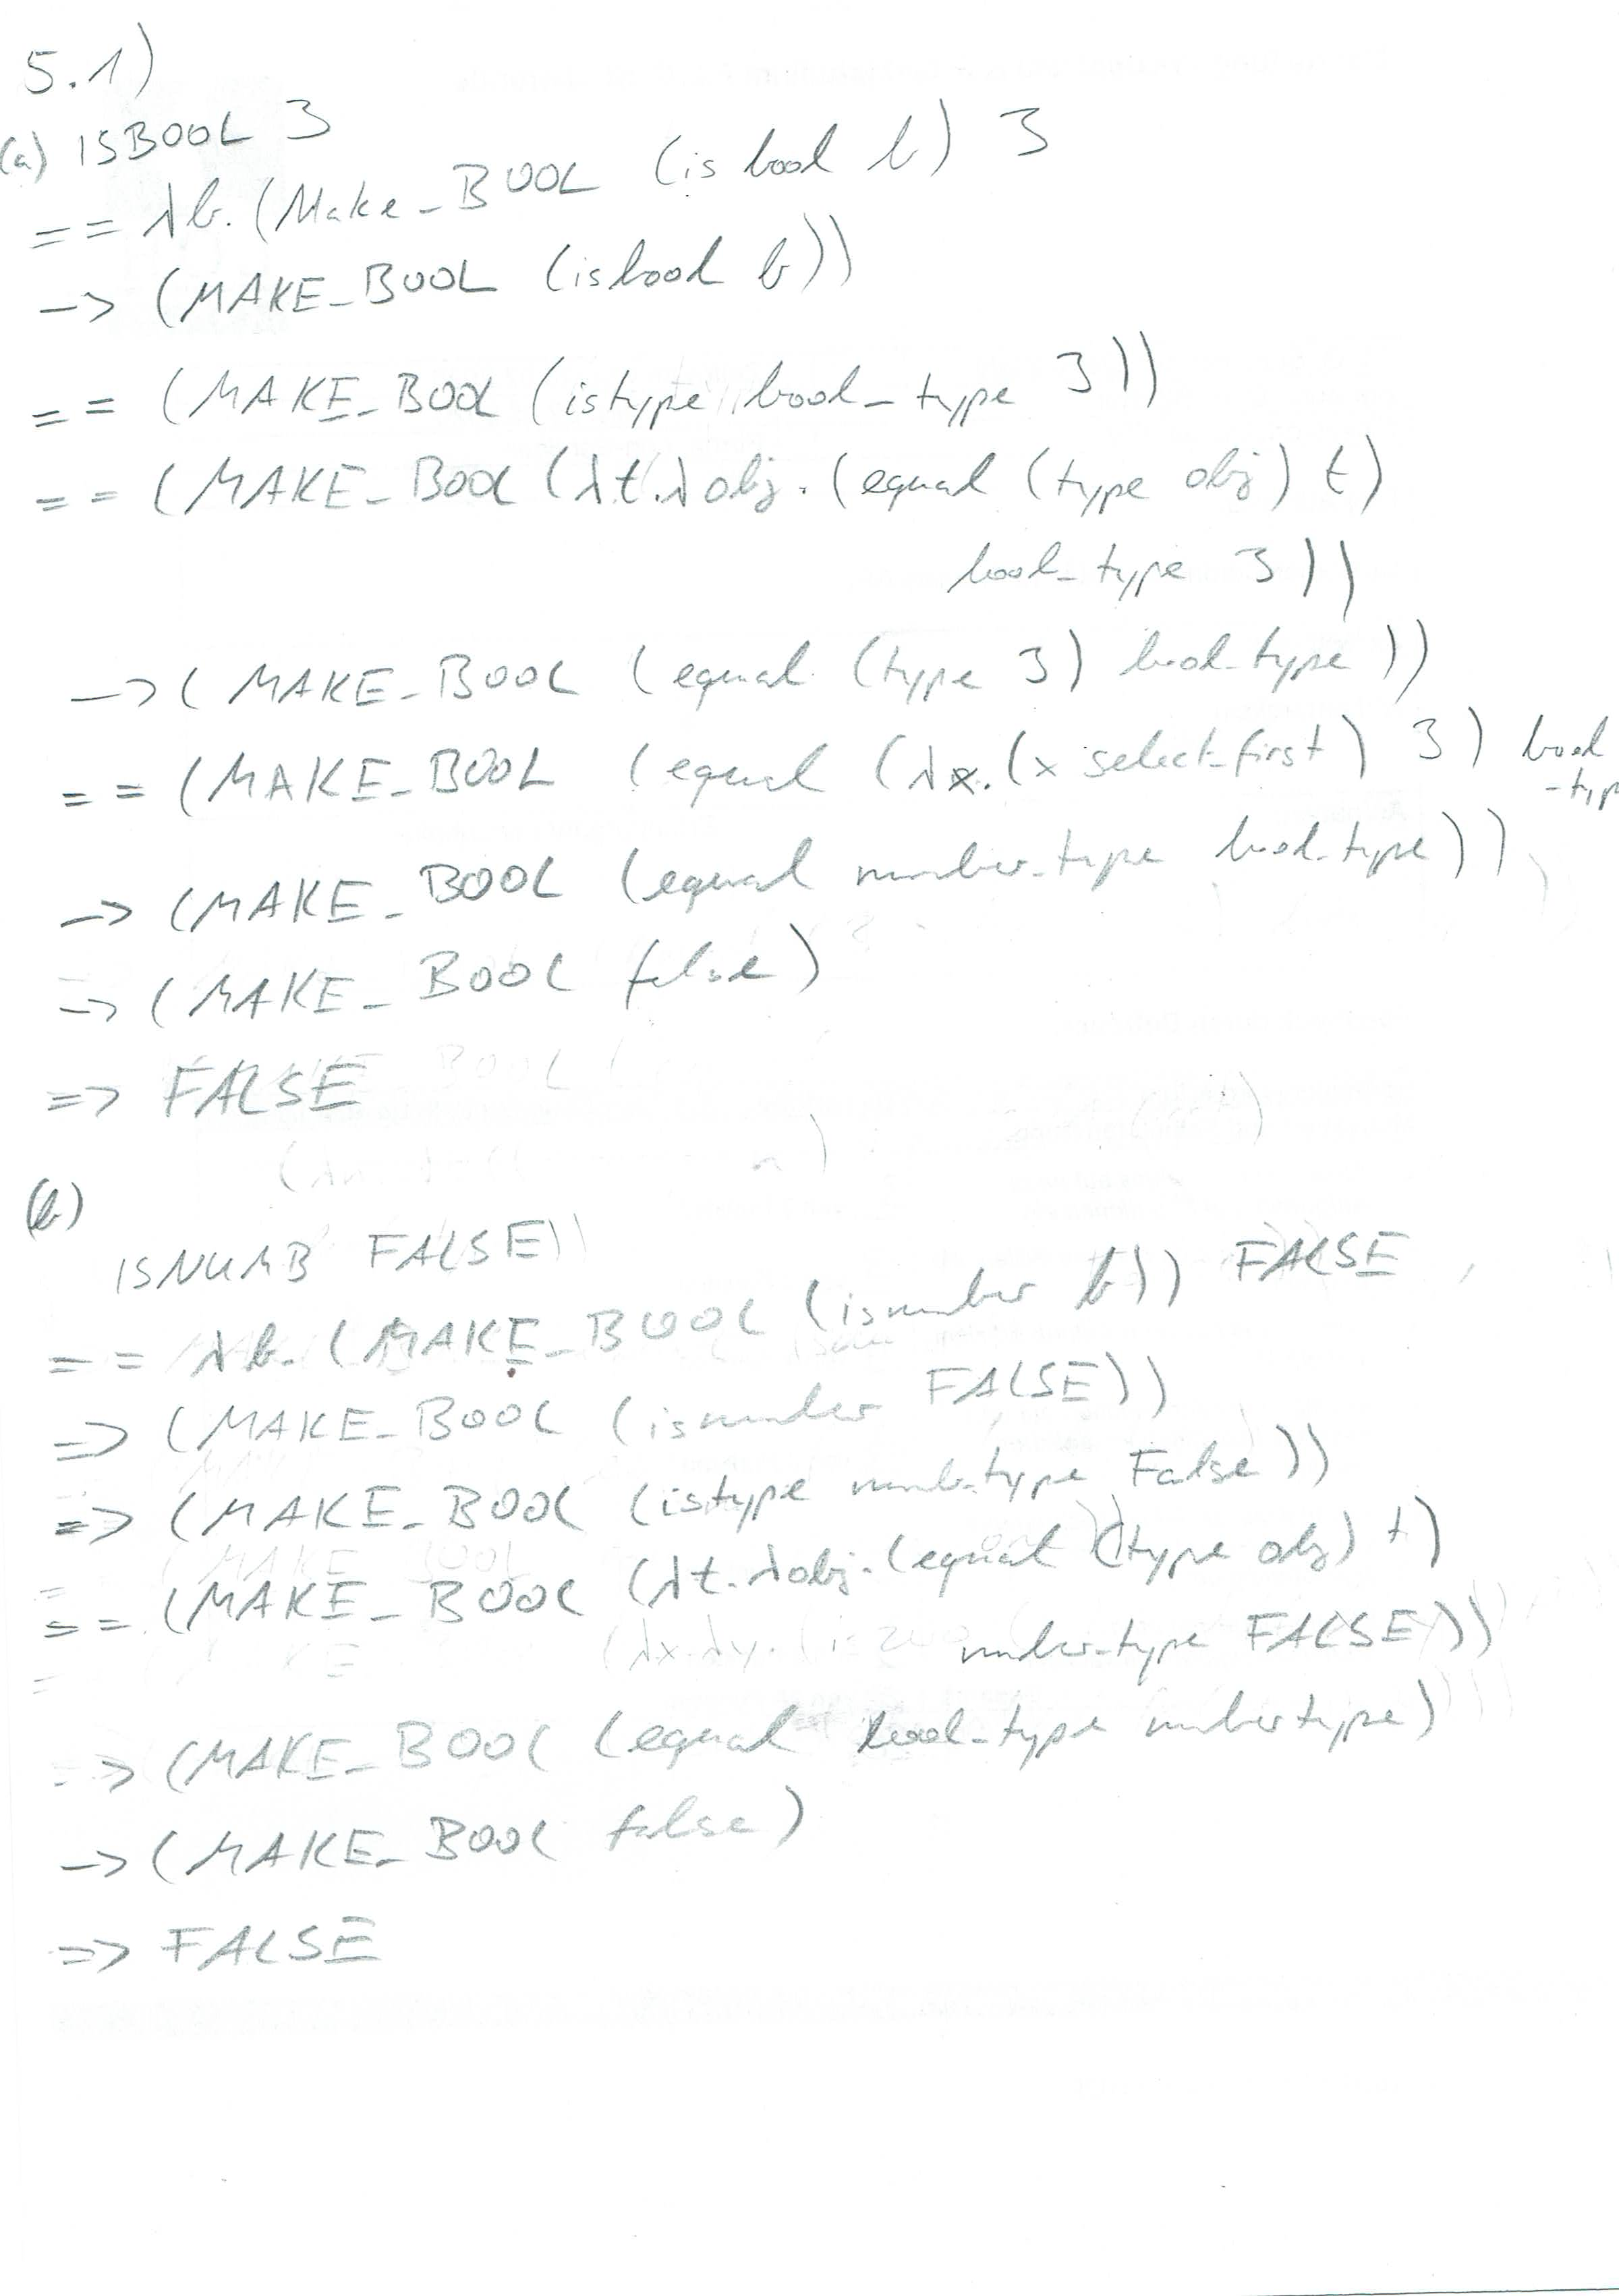 5.1)
(a) ISBOOL 3
== λb.(Make_BOOL (isbool b) 3
-> (MAKE_BOOL (isbool b))
== (MAKE_BOOL (istype bool_type 3))
== (MAKE_BOOL (λt.λobj.(equal (type obj) t)
bool_type 3))
-> (MAKE_BOOL (equal (type 3) bool_type))
== (MAKE_BOOL (equal (λx.(x select_first) 3) bool
-typ
-> (MAKE_BOOL (equal number_type bool_type))
-> (MAKE_BOOL false)
=> FALSE
(b)
ISNUMB FALSE
== λb.(MAKE_BOOL (isnumber b)) FALSE
=> (MAKE_BOOL (isnumber FALSE))
=> (MAKE_BOOL (istype numb_type False))
== (MAKE_BOOL (λt.λobj.(equal (type obj) t)
number_type FALSE))
=> (MAKE_BOOL (equal bool_type numbertype)
-> (MAKE_BOOL false)
=> FALSE